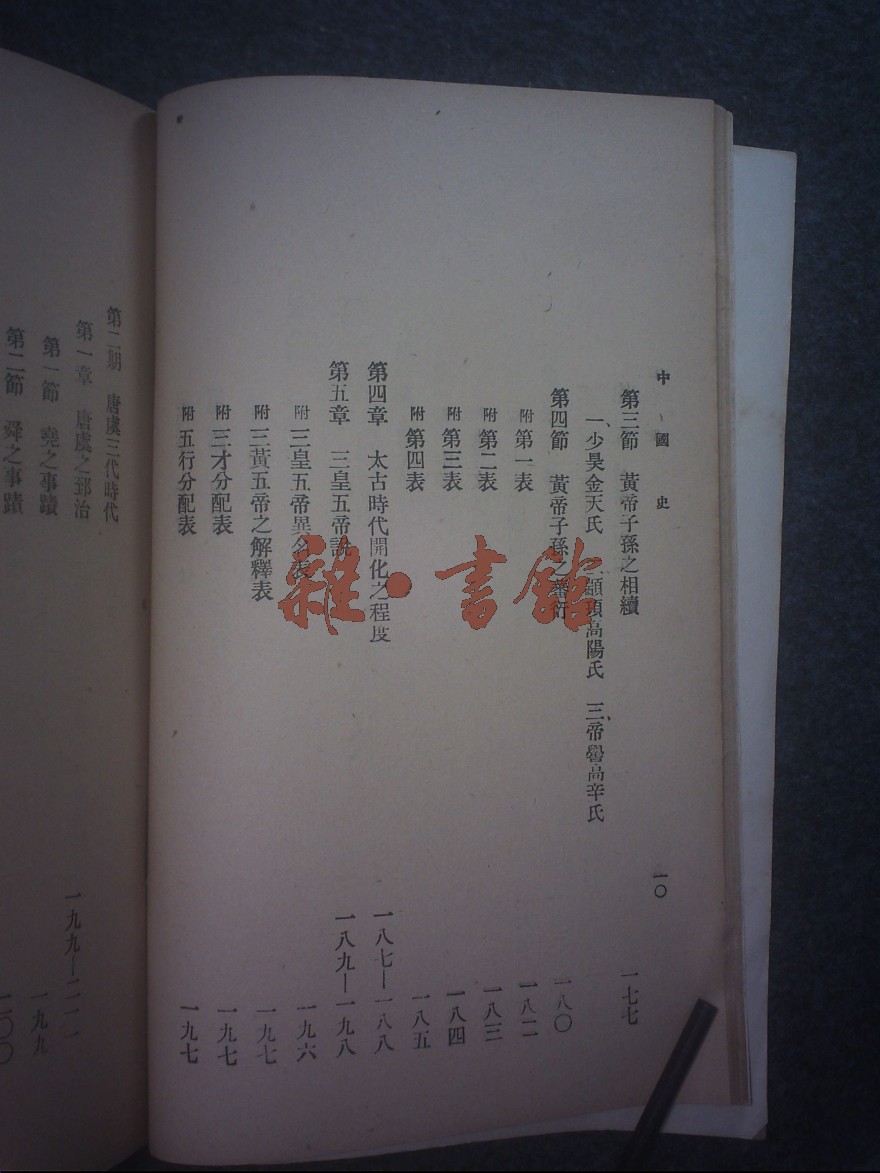 中國史
一〇
第三節 黃帝子孫之相續 一七七
一、少昊金天氏 二、顓頊高陽氏 三、帝嚳高辛氏
第四節 黃帝子孫之蕃衍 一八〇
附 第一表 一八二
附 第二表 一八三
附 第三表 一八四
附 第四表 一八五
第四章 太古時代開化之程度 一八七—一八八
第五章 三皇五帝說 一八九—一九八
附 三皇五帝異名表 一九六
附 三黃五帝之解釋表 一九七
附 三才分配表 一九七
附 五行分配表 一九七
第二期 唐虞三代時代
第一章 唐虞之郅治 一九九—二一一
第一節 堯之事蹟 一九九
第二節 舜之事蹟 二〇〇
雜·書館